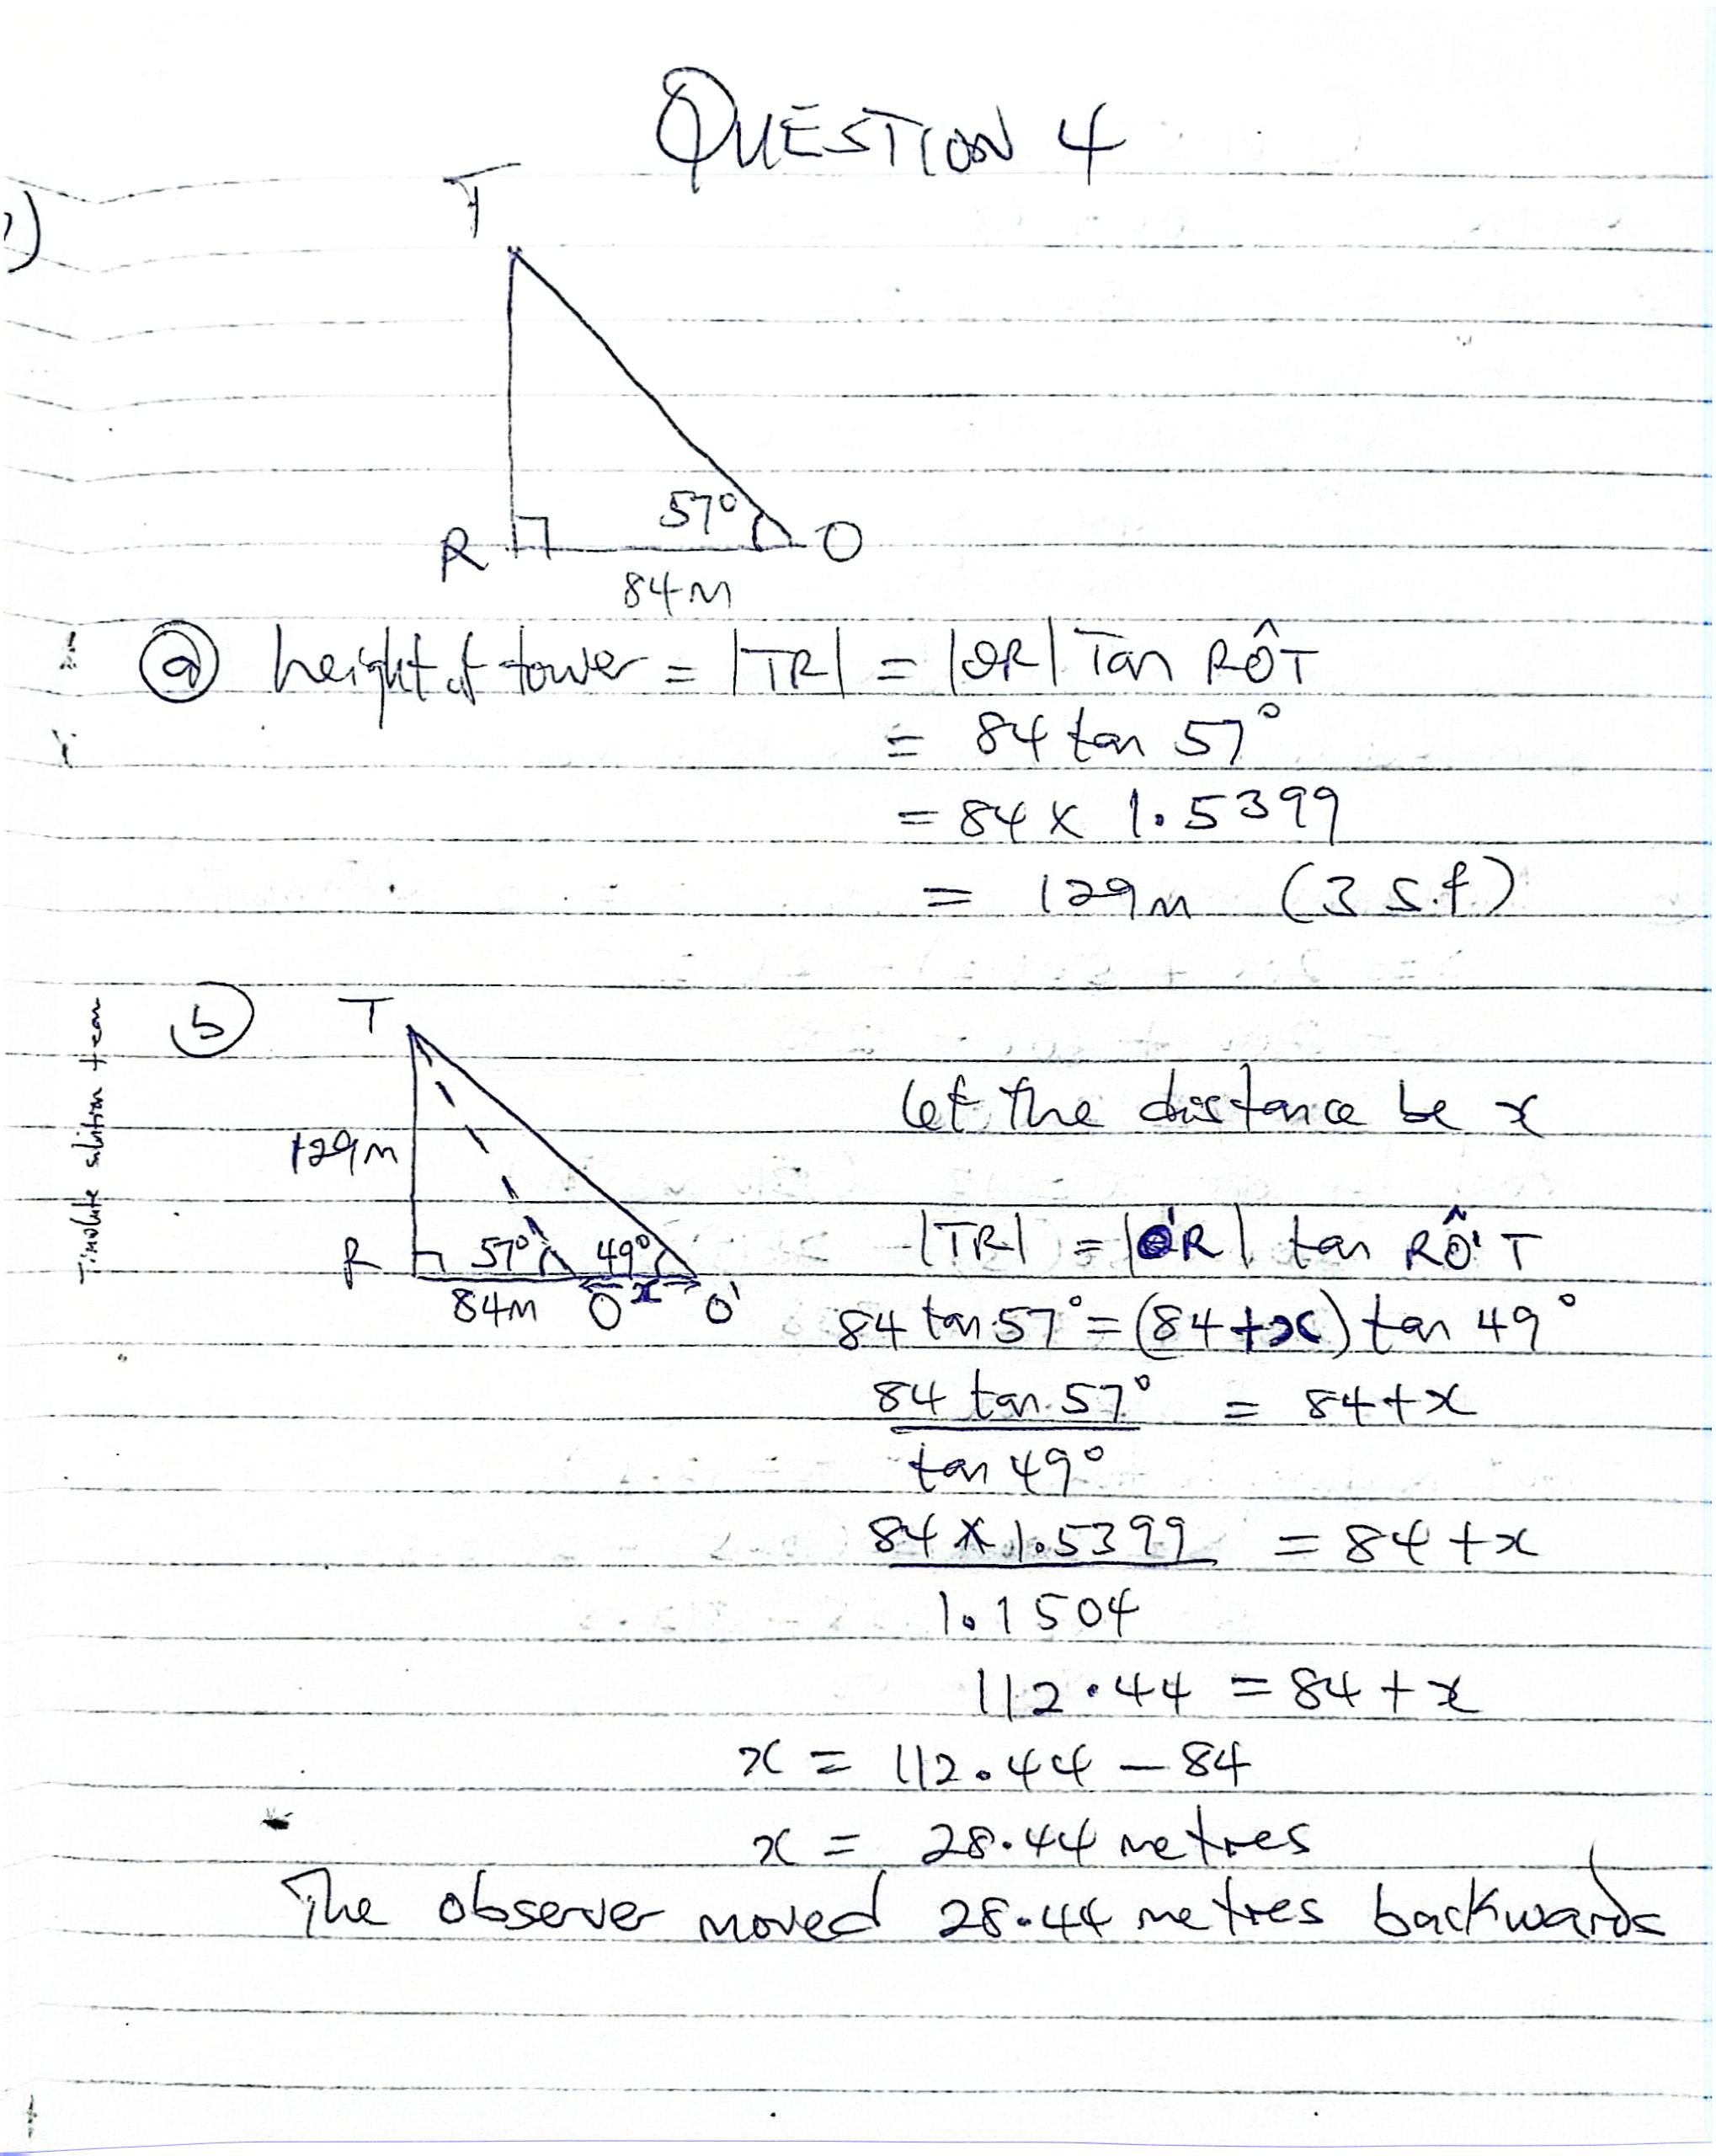 QUESTION 4
T
57°
R
O
84m
(a) height of tower = |TR| = |OR| Tan RÔT
= 84 tan 57°
= 84 x 1.5399
= 129m (3 s.f)
(b)
T
let the distance be x
129m
|TR| = |O'R| tan RÔ'T
R 57° 49°
84m O x O'
84 tan 57° = (84+x) tan 49°
84 tan 57° = 84+x
tan 49°
84 x 1.5399 = 84+x
1.1504
112.44 = 84+x
x = 112.44 - 84
x = 28.44 metres
The observer moved 28.44 metres backwards